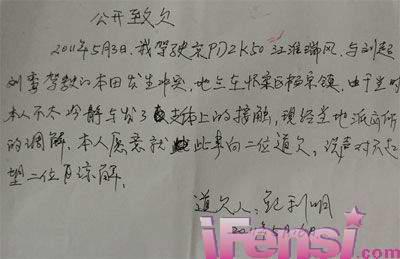 公开致欠
2011年5月3日，我驾驶京PD2K50江淮瑞风，与刘起
刘蛮驾驶的本田发生冲突，地点在怀柔区杨宋镇，由于当时
本人不太冷静与发了肢体上的接触，现经当地派出所
的调解，本人愿意就此事向二位道欠，说声对不起
望二位原谅解，
道欠人：利明
2011年5月6日
iFensi.com